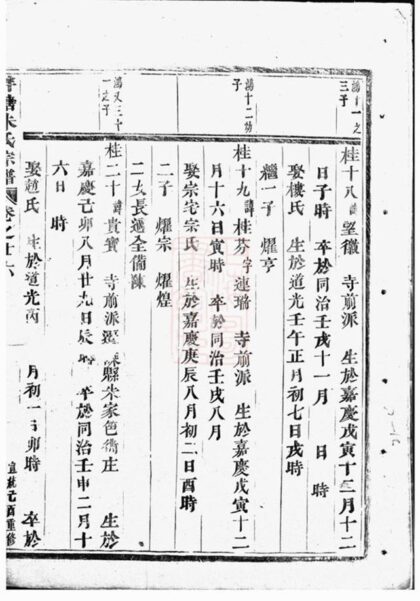 湯十一之
三子
桂十八諱望徵 寺前派 生於嘉慶戊寅十二月十二
日子時 卒於同治壬戌十一月 日 時
娶樓氏 生於道光壬午正月初七日戌時
繼一子 耀亨
湯十二幼
子
桂十九諱桂芬字連璐 寺前派 生於嘉慶戊寅十二
月十六日寅時 卒於同治壬戌八月
娶宗宅宗氏 生於嘉慶庚辰八月初二日酉時
二子 耀宗 耀煌
二女長適全備陳
湯又三十
一之子
桂二十諱貴寶 寺前派 縣朱家邑 庄 生於
嘉慶己卯八月廿九日辰時 卒於同治壬申二月十
六日 時
娶趙氏 生於道光丙 月初一日卯時 卒於
朱氏宗譜 卷之廿六
宣統己酉重修